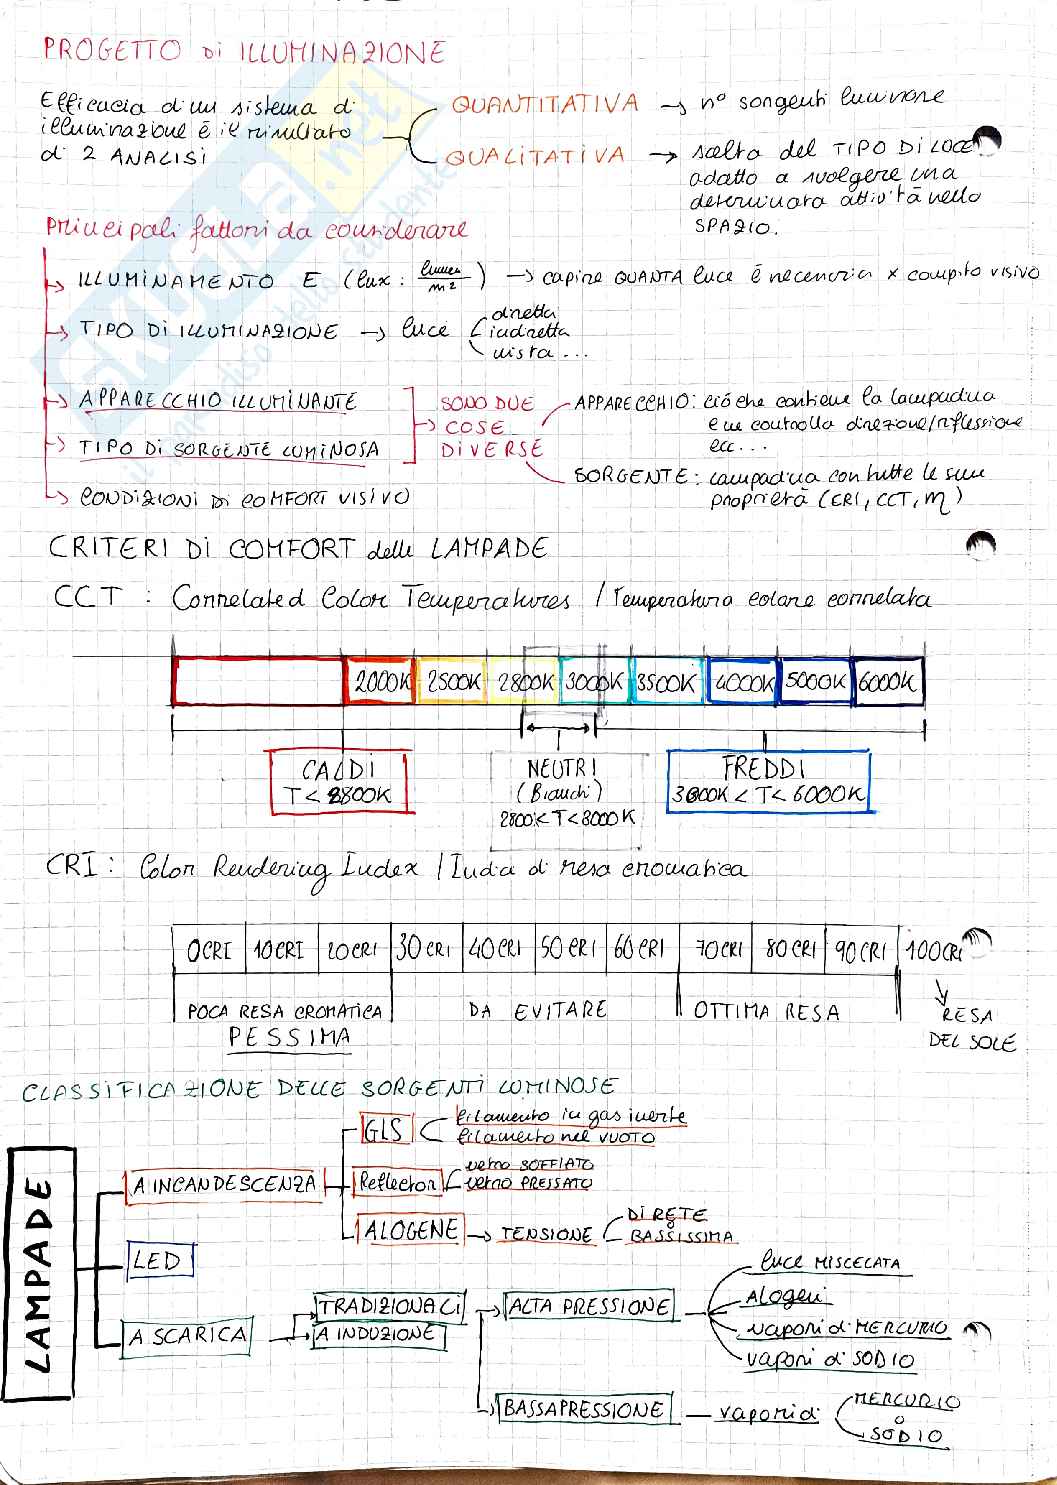 PROGETTO di ILLUMINAZIONE
Efficacia di un sistema di
illuminazione è il risultato
di 2 ANALISI
QUANTITATIVA → n° sorgenti luminose
QUALITATIVA → scelta del TIPO DI LUCE
adatto a svolgere una
determinata attività nello
SPAZIO.
Principali fattori da considerare
→ ILLUMINAMENTO E (lux: lumen/m²) → capire QUANTA luce è necessaria x compito visivo
→ TIPO DI ILLUMINAZIONE → luce
diretta
indiretta
mista...
→ APPARECCHIO ILLUMINANTE
→ TIPO DI SORGENTE LUMINOSA
SONO DUE
COSE
DIVERSE
APPARECCHIO: ciò che contiene la lampadina
e ne controlla direzione/riflessione
ecc...
SORGENTE: lampadina con tutte le sue
proprietà (CRI, CCT, η)
→ CONDIZIONI DI COMFORT VISIVO
CRITERI DI COMFORT delle LAMPADE
CCT : Correlated Color Temperatures / Temperatura colore correlata
2000K 2500K 2800K 3000K 3500K 4000K 5000K 6000K
CALDI
T < 2800K
NEUTRI
(Bianchi)
2800K < T < 3000K
FREDDI
3000K < T < 6000K
CRI: Color Rendering Index / Indice di resa cromatica
0CRI 10CRI 20CRI 30CRI 40CRI 50CRI 60CRI 70CRI 80CRI 90CRI 100CRI
POCA RESA CROMATICA
PESSIMA
DA EVITARE
OTTIMA RESA
RESA
DEL SOLE
CLASSIFICAZIONE DELLE SORGENTI LUMINOSE
LAMPADE
A INCANDESCENZA
GLS
filamento in gas inerte
filamento nel VUOTO
Reflector
vetro SOFFIATO
vetro PRESSATO
ALOGENE → TENSIONE
DI RETE
o
BASSISSIMA
LED
A SCARICA
TRADIZIONALI
A INDUZIONE
ALTA PRESSIONE
luce MISCELATA
Alogeni
vapori di MERCURIO
vapori di SODIO
BASSA PRESSIONE
vapori di
MERCURIO
o
SODIO
SKUOLA.net
il paradiso dello studente